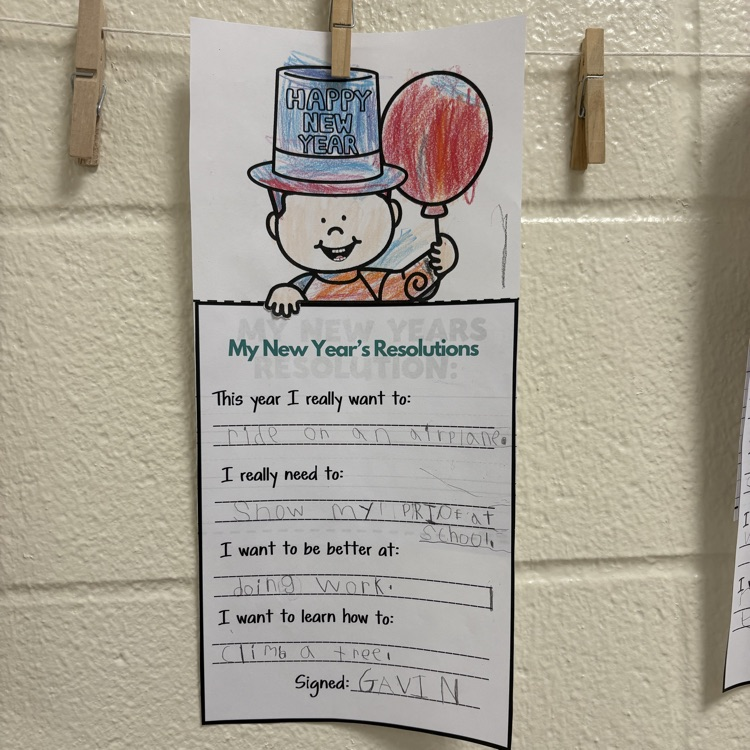 HAPPY
NEW
YEAR
MY NEW YEARS
My New Year's Resolutions
RESOLUTION:
This year I really want to:
ride on an airplane.
I really need to:
Show my PRIDE at
School.
I want to be better at:
doing work.
I want to learn how to:
Climb a tree.
Signed: GAVIN